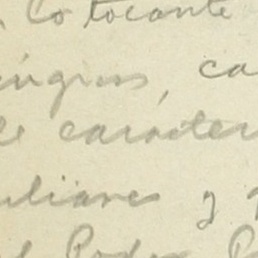 lo tocante
ingreso, ca
de carácter
uliares y
el Poder